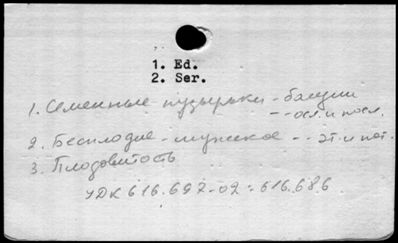 1. Ed.
2. Ser.
1. Семенные пузырьки - бацилл
-- осл. и посл.
2. Бесплодие - мужское -- эт. и пат.
3. Плодовитость
УДК 616.697-02:616.686